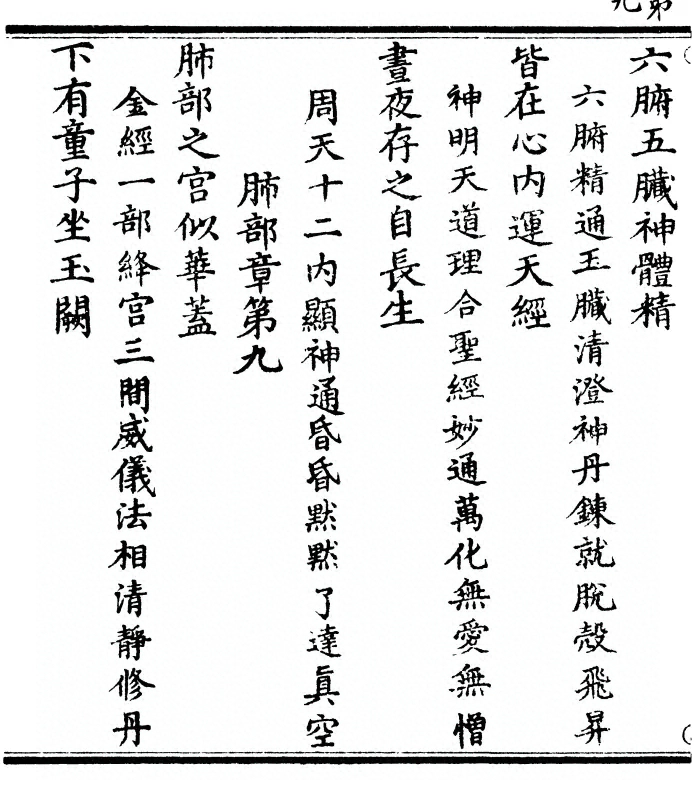 六腑五臟神體精
六腑精通玉臟清澄神丹鍊就脫殼飛昇
皆在心內運天經
神明天道理合聖經妙通萬化無愛無憎
晝夜存之自長生
周天十二內顯神通昏昏默默了達眞空
肺部章第九
肺部之宮似華蓋
金經一部絳宮三間威儀法相清靜修丹
下有童子坐玉闕